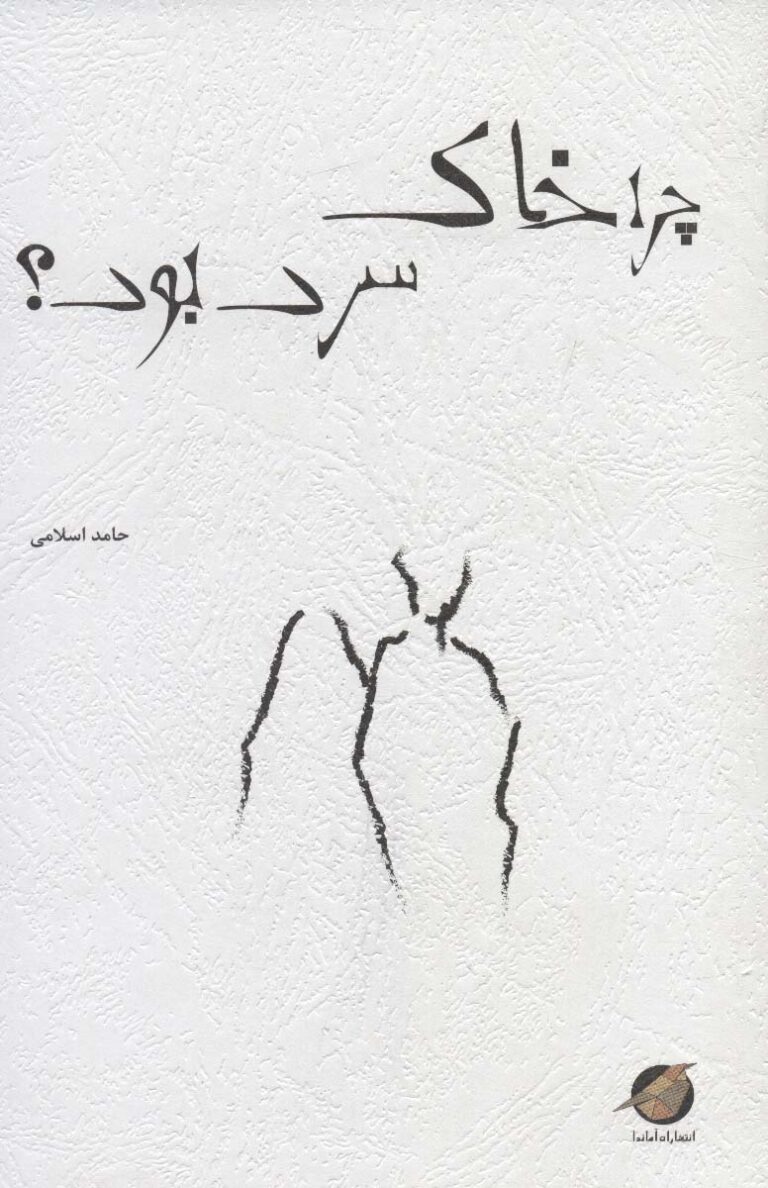 چرا خاک
سرد بود؟
حامد اسلامی
انتشارات آماندا